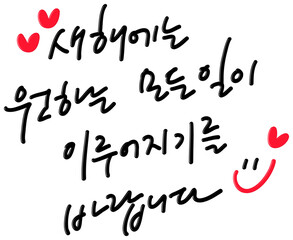 새해에는
원하는 모든일이
이루어지기를
바랍니다